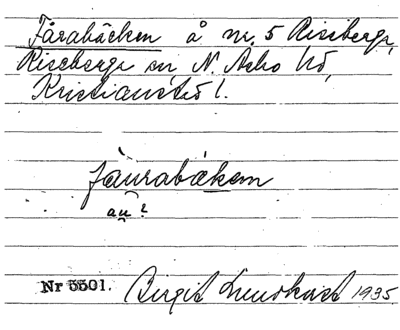 Fårabäcken å nr. 5 Riseberga,
Riseberga sn, N. Åsbo hd,
Kristianstad l.
fau̯rabækən
au̯?
Nr 5501. Birgit Lundkvist 1935